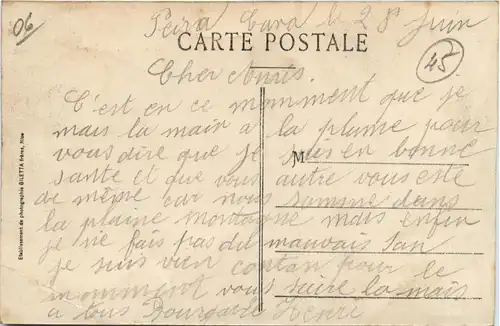 06
Peira Cava le 28 Juin
CARTE POSTALE
45
Cher Amis.
C'est en ce momment que je
mais la main a la plume pour
vous dire que je suis en bonne
M
sante et que vous autre vous ete
de même car nous somme dans
la plaine montagne mais enfin
je ne fais pas du mauvais san
je suis vien contan pour le
momment vous saire la main
a tous Henri
Etablissement de photographie GILETTA frères, Nice